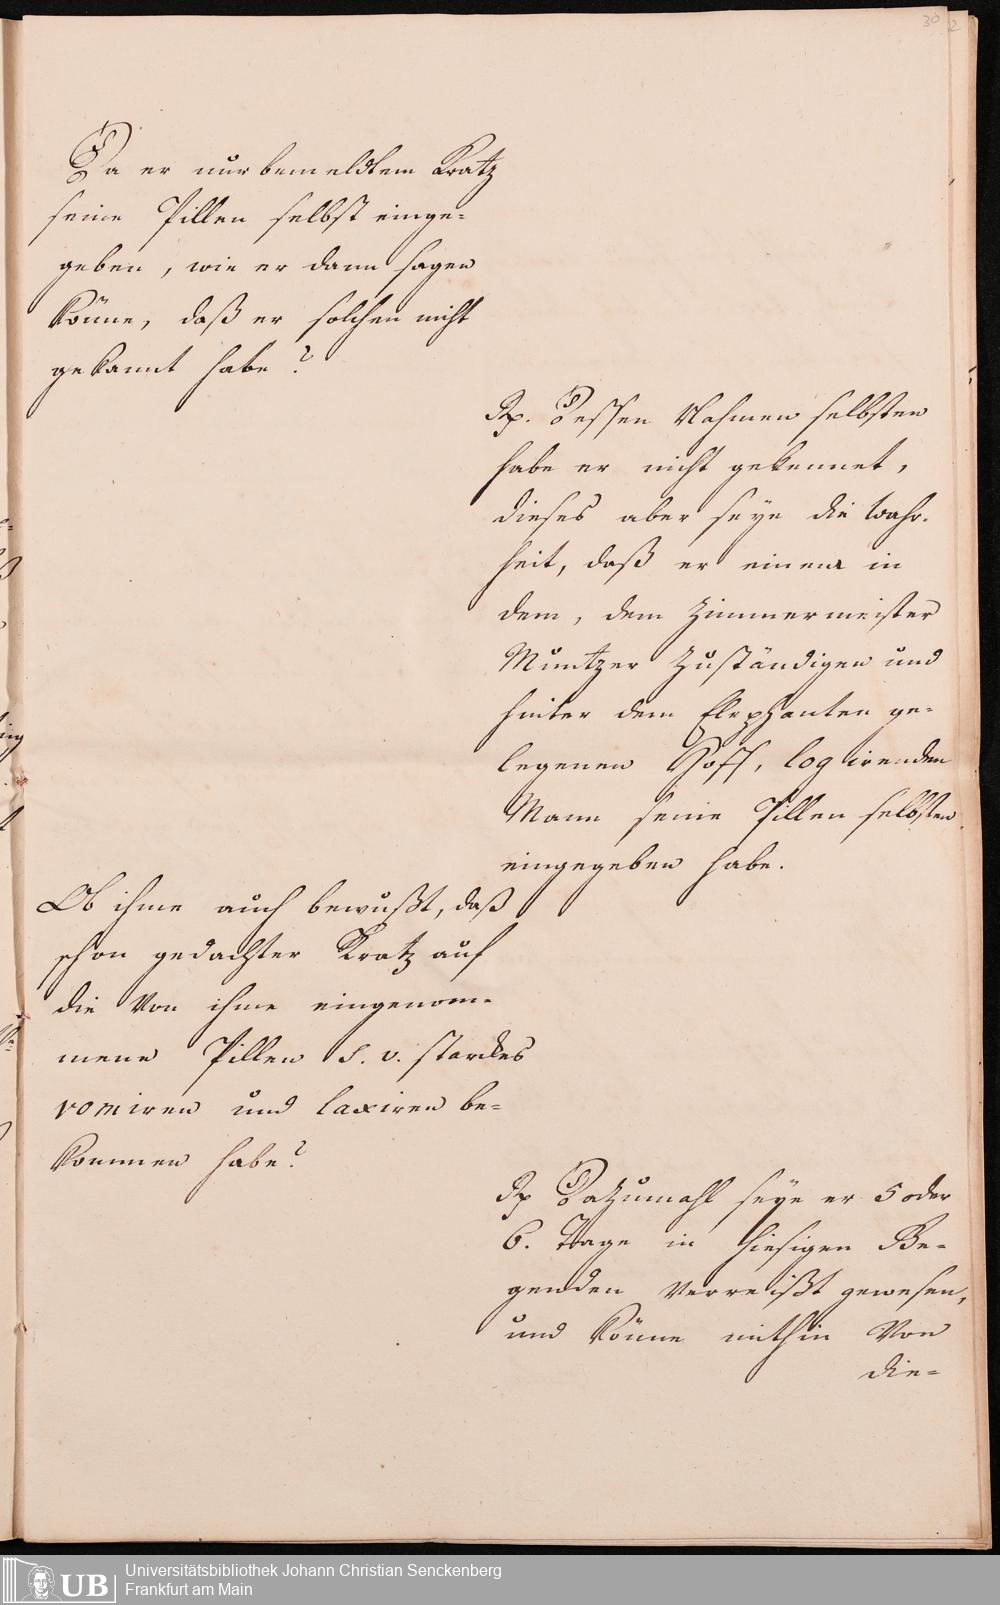 30
2
Da er nur bemeldtem Kratz
seine Pillen selbst einge=
geben, wie er dann sagen
könne, daß er solchen nicht
gekannt habe?
Rp. Dessen Nahmen selbsten
habe er nicht gekennet,
dieses aber seye die Wahr-
heit, daß er einem in
dem, dem Zimmermeister
Muntzer zuständigen und
hinter dem Elephanten ge=
legenen Hoff, logirenden
Mann seine Pillen selbsten
eingegeben habe.
Ob ihme auch bewußt, daß
schon gedachter Kratz auf
die von ihme eingenom=
mene Pillen S. v. starckes
vomiren und laxiren be=
kommen habe?
Rp Dazumahl seye er 5 oder
6. Tage in hiesigen Be=
genden verreißt gewesen,
und könne mithin von
die=
Universitätsbibliothek Johann Christian Senckenberg
Frankfurt am Main
UB